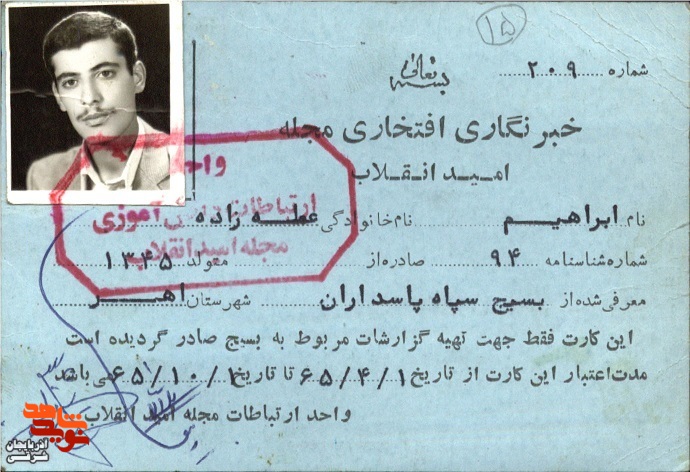 ۱۵
بسمه تعالی
شماره ۲۰۹
خبرنگاری افتخاری مجله
امید انقلاب
نام ابراهیم نام‌خانوادگی عطه زاده
شماره شناسنامه ۹۴ صادره از متولد ۱۳۴۵
معرفی شده از بسیج سپاه پاسداران شهرستان اهر
این کارت فقط جهت تهیه گزارشات مربوط به بسیج صادر گردیده است
مدت اعتبار این کارت از تاریخ ۶۵/۴/۱ تا تاریخ ۶۵/۱۰/۱ می باشد
واحد ارتباطات مجله امید انقلاب
واحد
ارتباطات آموزی
مجله امید انقلاب
نوید شاهد
آذربایجان
شرقی